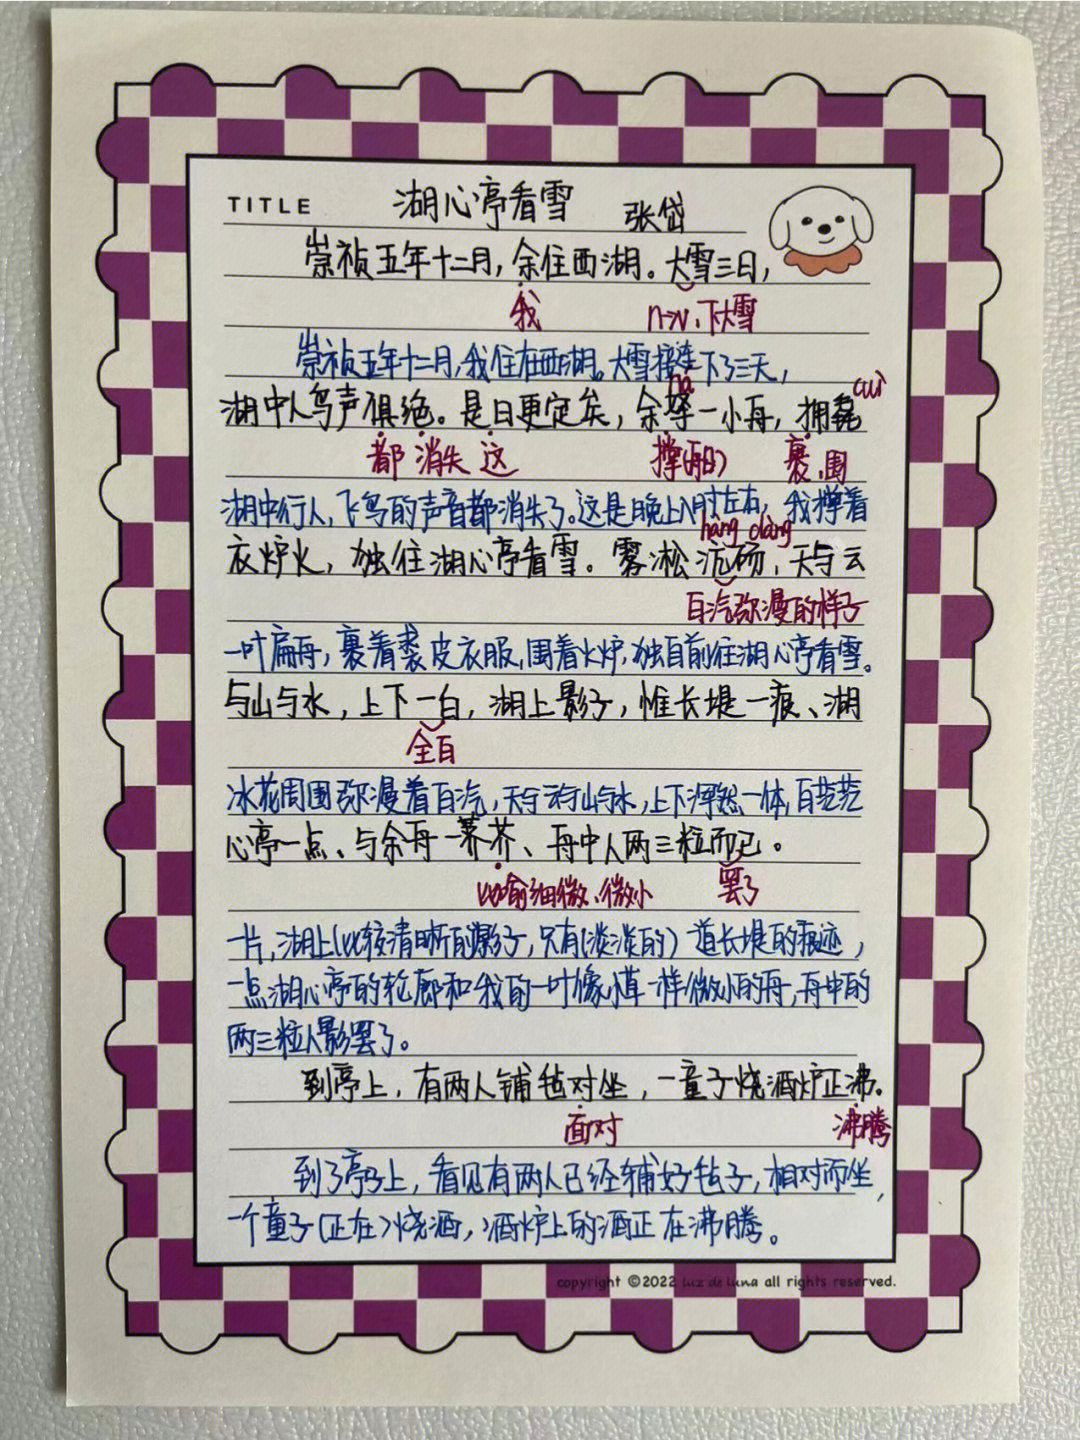 TITLE 湖心亭看雪 张岱
崇祯五年十二月，余住西湖。大雪三日，
我 n→v，下大雪
崇祯五年十二月，我住在西湖。大雪接连下了三天，
ná cuì
湖中人鸟声俱绝。是日更定矣，余拏一小舟，拥毳
都 消失 这 撑(船) 裹，围
湖中行人，飞鸟的声音都消失了。这是晚上八时左右，我撑着
hàng dàng
衣炉火，独往湖心亭看雪。雾凇沆砀，天与云
白汽弥漫的样子
一叶扁舟，裹着裘皮衣服，围着火炉，独自前往湖心亭看雪。
与山与水，上下一白，湖上影子，惟长堤一痕、湖
全白
冰花周围弥漫着白汽，天与云与山与水，上下浑然一体，白茫茫
心亭一点、与余舟一芥、舟中人两三粒而已。
比喻细微、微小 罢了
一片，湖上(比较清晰的)影子，只有(淡淡的)一道长堤的痕迹，
一点湖心亭的轮廓和我的一叶像小草一样微小的舟，舟中的
两三粒人影罢了。
到亭上，有两人铺毡对坐，一童子烧酒炉正沸。
面对 沸腾
到了亭子上，看见有两人已经铺好毡子，相对而坐，
一个童子(正在)烧酒，酒炉上的酒正在沸腾。
copyright ©2022 luz de luna all rights reserved.